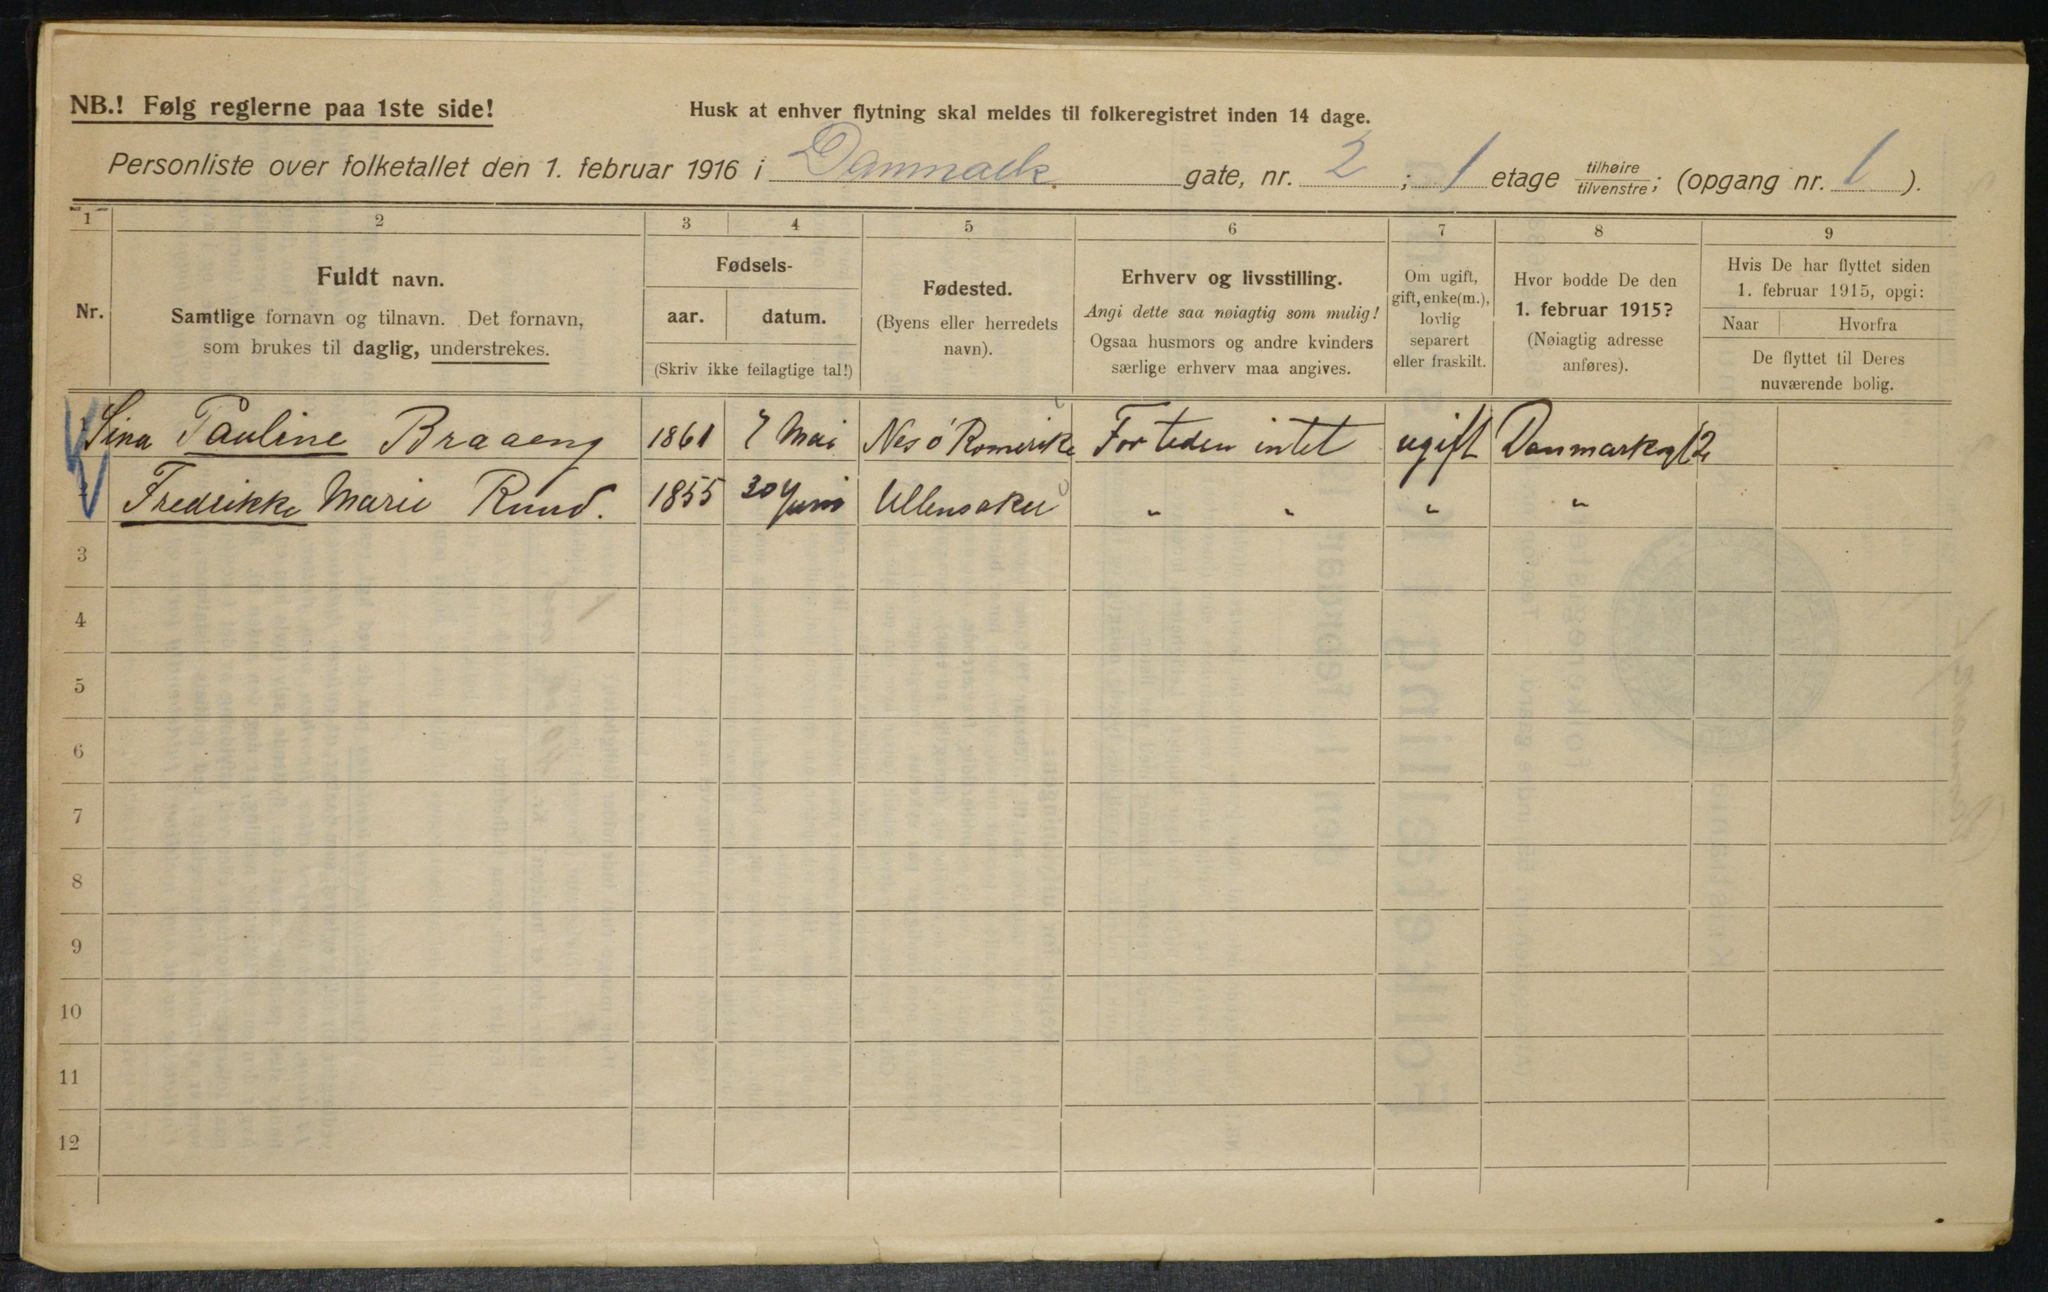 NB.! Følg reglerne paa 1ste side!
Husk at enhver flytning skal meldes til folkeregistret inden 14 dage.
Personliste over folketallet den 1. februar 1916 i Danmark. gate, nr. 2 ; 1 etage tilhøire tilvenstre; (opgang nr. 1 ).
1 2 3 4 5 6 7 8 9
Nr.
Fuldt navn.
Samtlige fornavn og tilnavn. Det fornavn,
som brukes til daglig, understrekes.
Fødsels-
aar. datum.
(Skriv ikke feilagtige tal!)
Fødested.
(Byens eller herredets
navn).
Erhverv og livsstilling.
Angi dette saa nøiagtig som mulig!
Ogsaa husmors og andre kvinders
særlige erhverv maa angives.
Om ugift,
gift, enke(m.),
lovlig
separert
eller fraskilt.
Hvor bodde De den
1. februar 1915?
(Nøiagtig adresse
anføres).
Hvis De har flyttet siden
1. februar 1915, opgi:
Naar Hvorfra
De flyttet til Deres
nuværende bolig.
1 Sina Pauline Braaeng 1861 7 Mai Nes ö Romerike For tiden intet ugift Danmarkgt 2
2 Fredrikke Marie Ruud. 1855 30 Juni Ullensaker " " " "
3
4
5
6
7
8
9
10
11
12